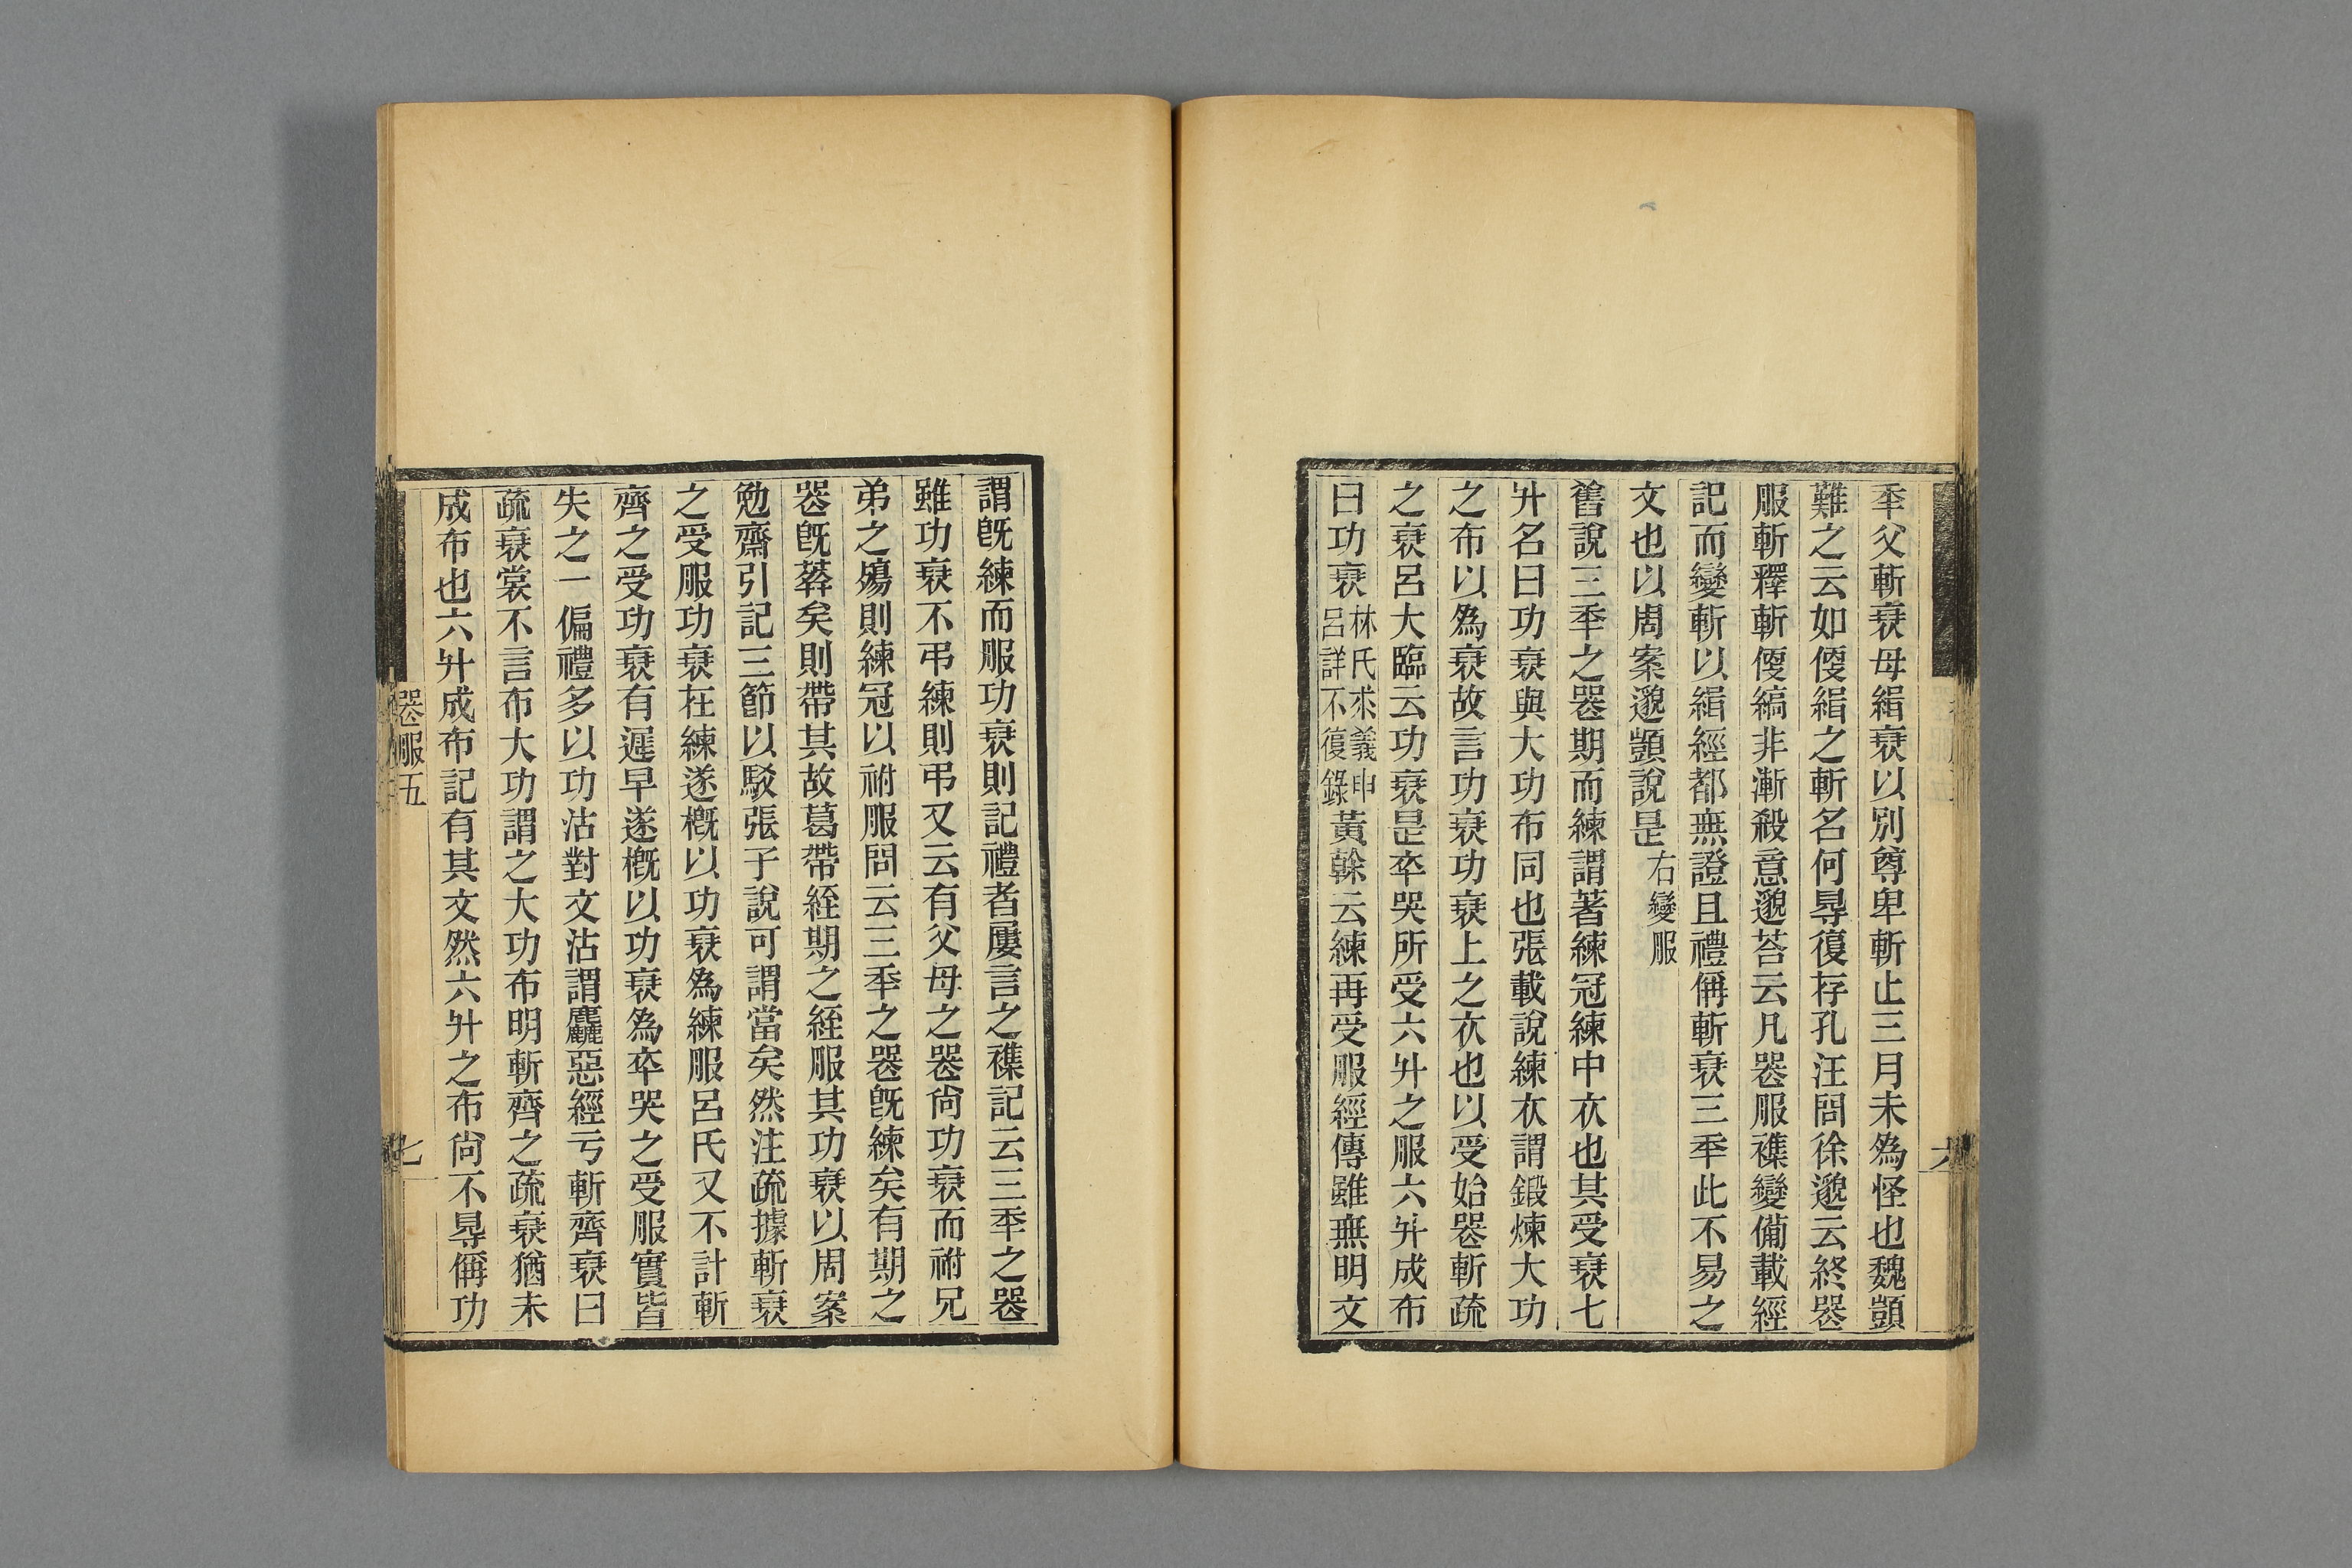 秊父斬衰母緝衰以別尊卑斬止三月未爲怪也魏顗
難之云如㥠緝之斬名何㝵復存孔汪問徐邈云終喪
服斬釋斬㥠縞非漸殺意邈荅云凡喪服襍變備載經
記而變斬以緝經都無證且禮偁斬衰三秊此不易之
文也以周案邈顗說是右變服
舊說三秊之喪期而練謂著練冠練中衣也其受衰七
升名曰功衰與大功布同也張載說練衣謂鍛煉大功
之布以爲衰故言功衰功衰上之衣也以受始喪斬疏
之衰呂大臨云功衰是卒哭所受六升之服六升成布
曰功衰林氏求義申呂詳不復錄黃榦云練再受服經傳雖無明文
謂旣練而服功衰則記禮者屢言之襍記云三秊之喪
雖功衰不弔練則弔又云有父母之喪尙功衰而祔兄
弟之殤則練冠以祔服問云三秊之喪旣練矣有期之
喪旣葬矣則帶其故葛帶絰期之絰服其功衰以周案
勉齋引記三節以駁張子說可謂當矣然注疏據斬衰
之受服功衰在練遂槪以功衰爲練服呂氏又不計斬
齊之受功衰有遲早遂槪以功衰爲卒哭之受服實皆
失之一偏禮多以功沽對文沽謂麤惡經亏斬齊衰曰
疏衰裳不言布大功謂之大功布明斬齊之疏衰猶未
成布也六升成布記有其文然六升之布尙不㝵偁功
喪服五
七
六